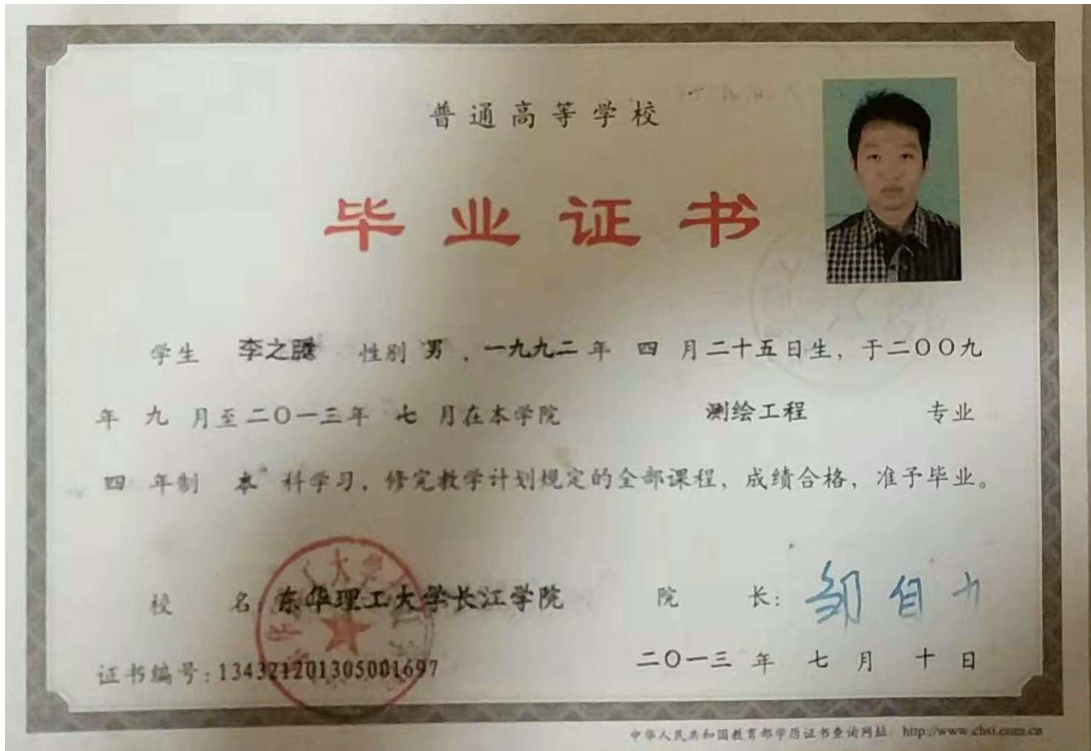 普通高等学校
毕业证书
学生 李之 性别 男，一九九二年 四 月二十五日生，于二〇〇九
年 九 月至二〇一三年 七 月在本学院 测绘工程 专业
四 年制 本 科学习，修完教学计划规定的全部课程，成绩合格，准予毕业。
校 名：东华理工大学长江学院 院 长：邹自力
证书编号：134321201305001697 二〇一三 年 七 月 十 日
中华人民共和国教育部学历证书查询网址：http://www.chsi.com.cn